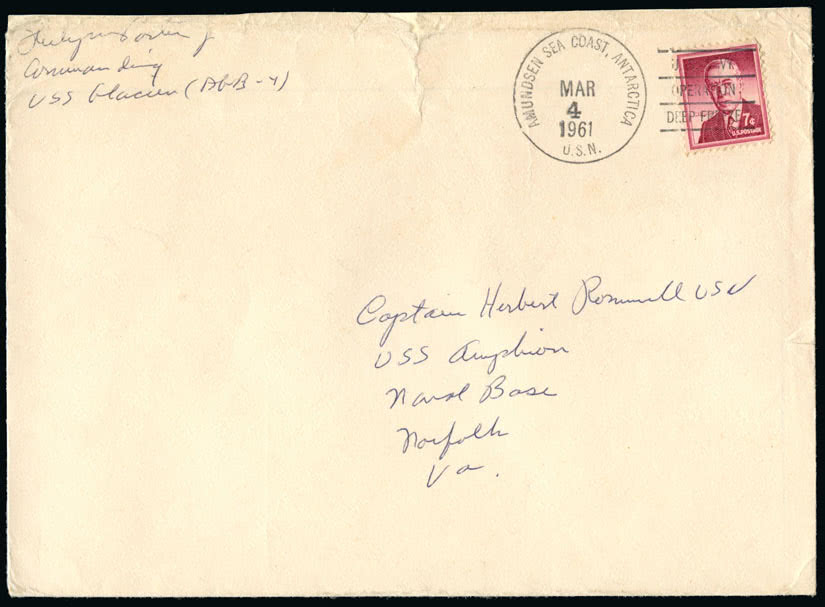 Commanding
USS Glacier (AGB-4)
AMUNDSEN SEA COAST, ANTARCTICA
MAR
4
1961
U.S.N.
OPERATION
DEEP FREEZE
7¢
U.S. POSTAGE
Captain Herbert Rommell USN
USS Amphion
Naval Base
Norfolk
Va.